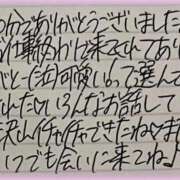 0分でありがとうございました
お仕事終わりに来てくれてあり
がとー
って選んで
れたしいろんなお話して
沢山イチャイチャできたねいま
いつでも会いに来てね♪